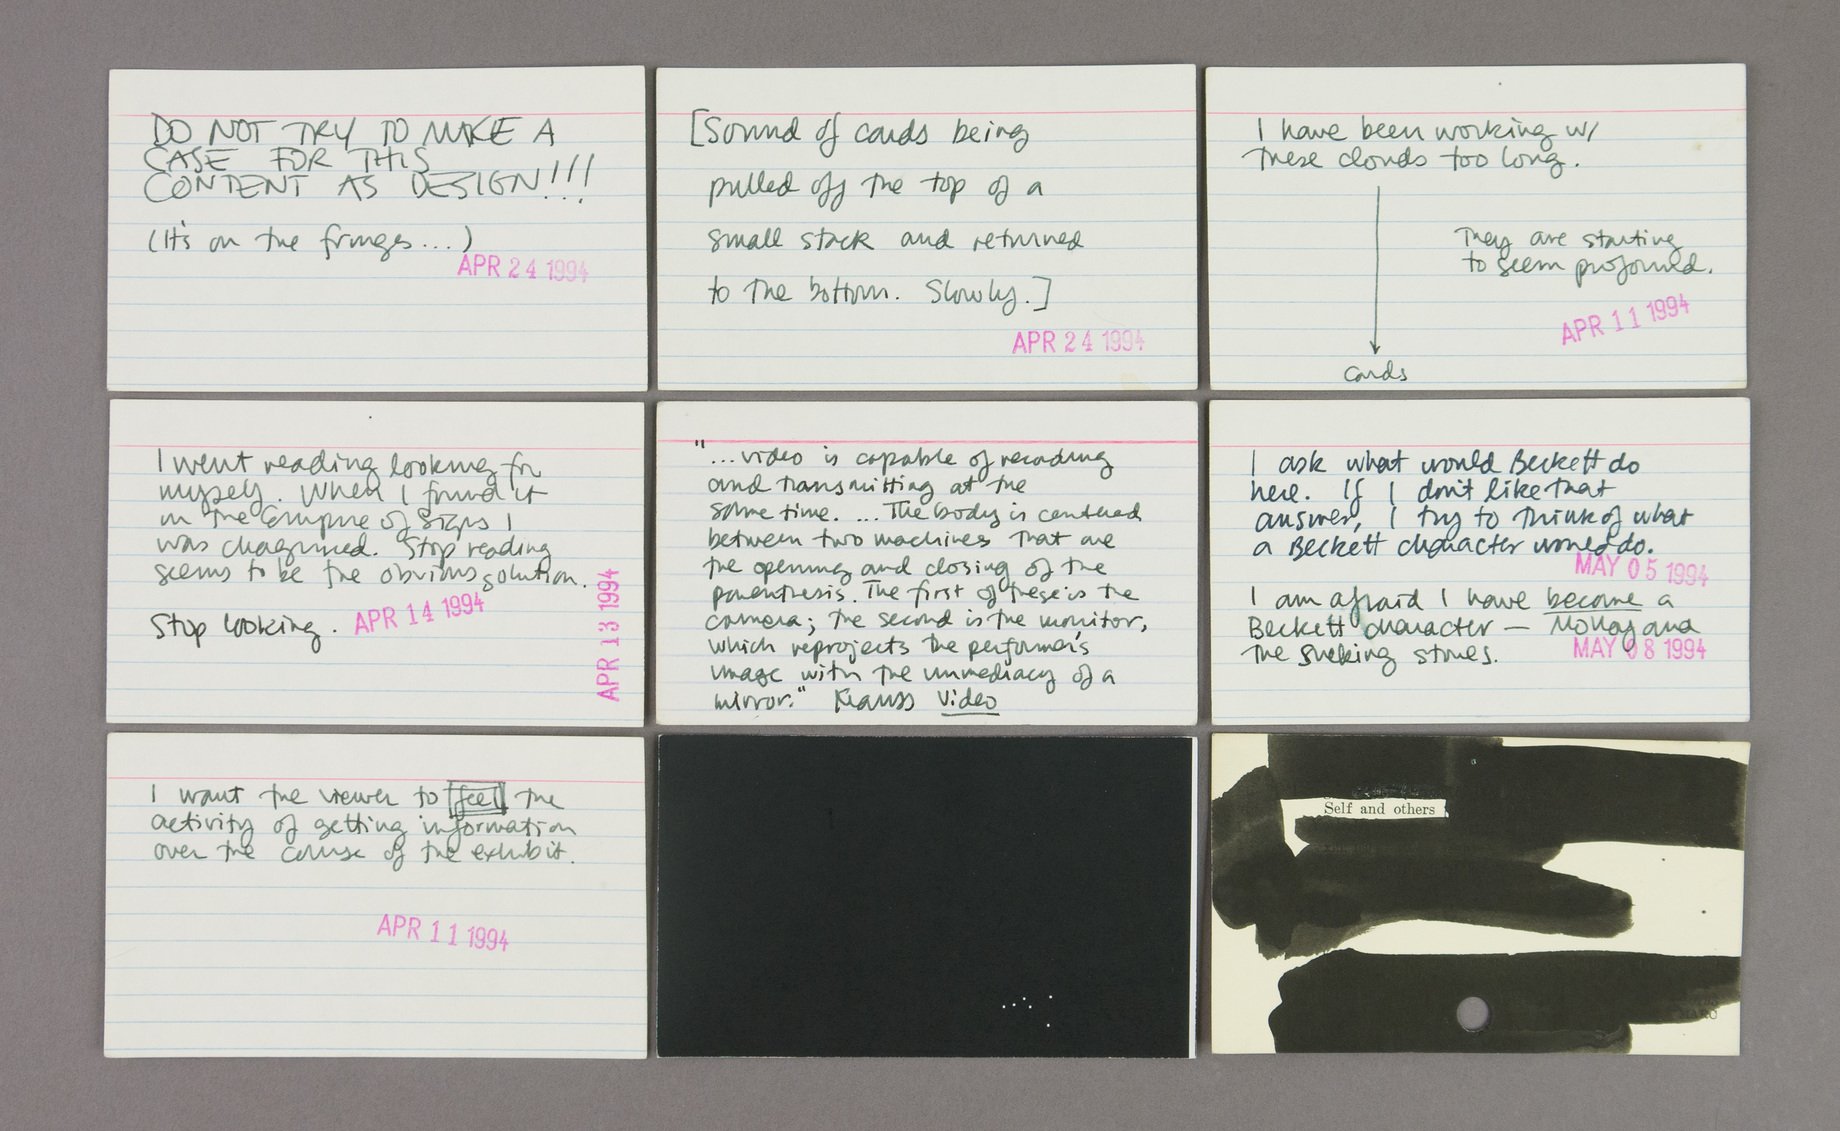 DO NOT TRY TO MAKE A
CASE FOR THIS
CONTENT AS DESIGN!!!
(It's on the fringes...)
APR 24 1994
[Sound of cards being
pulled off the top of a
small stack and returned
to the bottom. Slowly.]
APR 24 1994
I have been working w/
these clouds too long.
They are starting
to seem profound.
APR 11 1994
cards
I went reading looking for
myself. When I found it
in the Empire of Signs I
was chagrined. Stop reading
seems to be the obvious solution.
Stop looking. APR 14 1994
APR 13 1994
"...video is capable of recording
and transmitting at the
same time. ...The body is centered
between two machines that are
the opening and closing of the
parenthesis. The first of these is the
camera; the second is the monitor,
which reprojects the performer's
image with the immediacy of a
mirror." Krauss Video
I ask what would Beckett do
here. If I don't like that
answer, I try to think of what
a Beckett character would do.
MAY 05 1994
I am afraid I have become a
Beckett character — Molloy and
the sucking stones.
MAY 08 1994
I want the viewer to feel the
activity of getting information
over the course of the exhibit.
APR 11 1994
Self and others